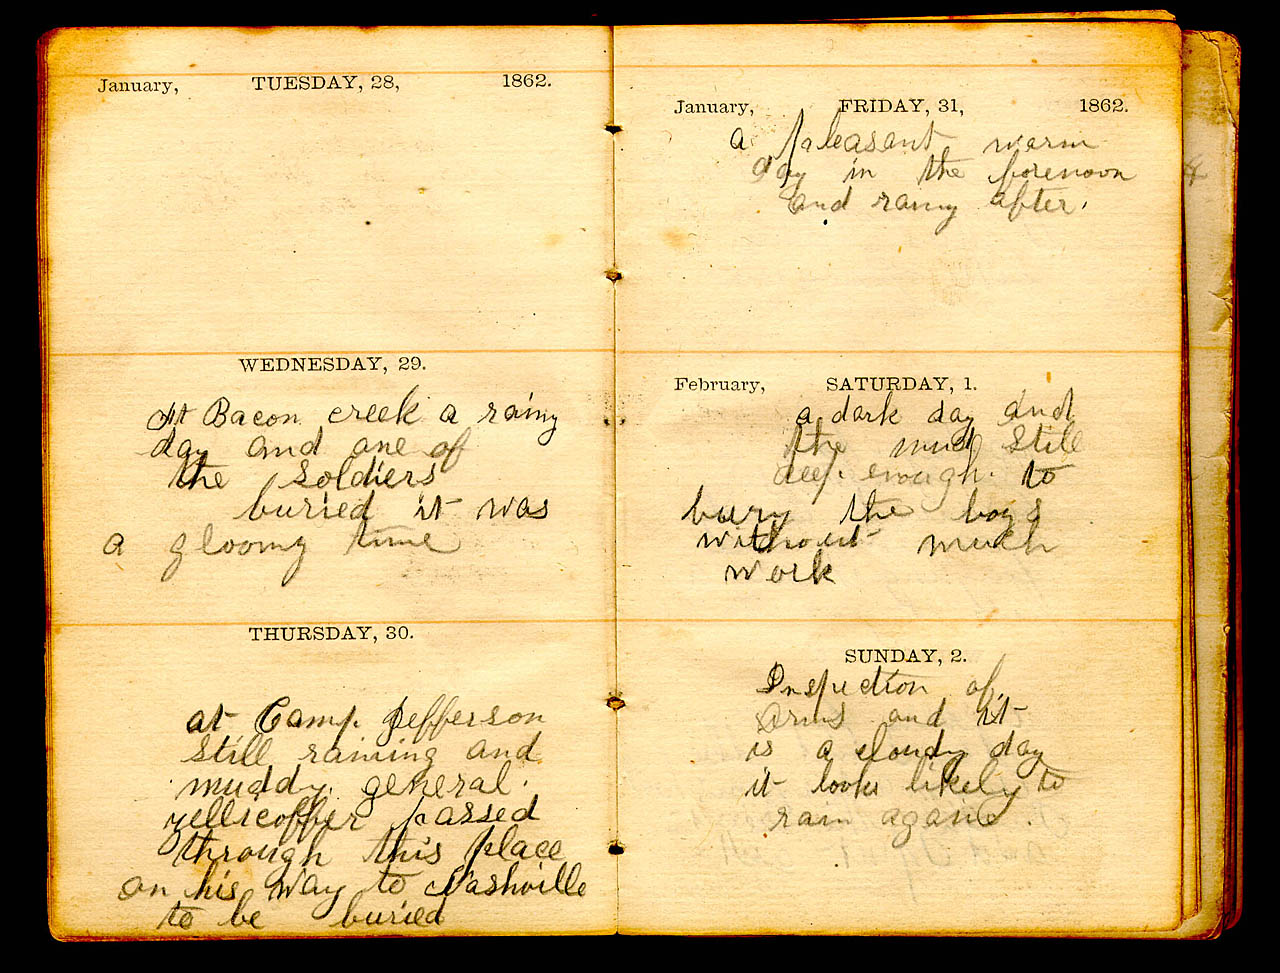 January, TUESDAY, 28, 1862.
WEDNESDAY, 29.
At Bacon creek a rainy
day and one of
the soldiers
buried it was
a gloomy time
THURSDAY, 30.
at Camp Jefferson
still raining and
muddy. general.
zellicoffer passed
through this place
on his way to Nashville
to be buried
January, FRIDAY, 31, 1862.
a pleasant warm
day in the forenoon
and rainy after.
February, SATURDAY, 1.
a dark day and
the mud still
deep enough to
bury the boys
without much
work
SUNDAY, 2.
Inspection of
Arms and it
is a cloudy day
it looks likely to
rain again.